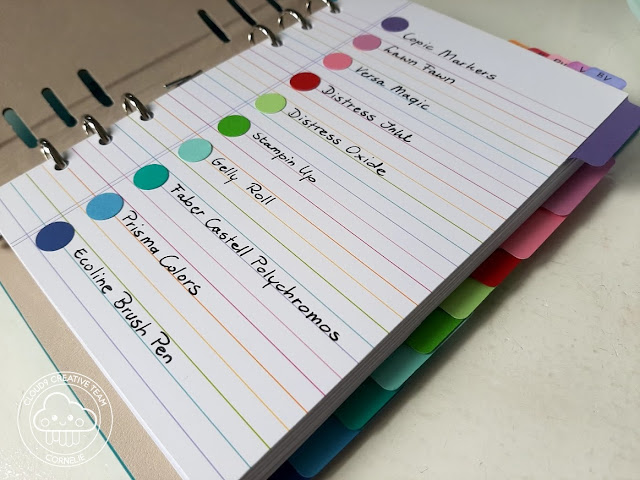 Copic Markers
Lawn Fawn
Versa Magic
Distress Inkt
Distress Oxide
Stampin Up
Gelly Roll
Faber Castell Polychromos
Prisma Colors
Ecoline Brush Pen
V
BV
CLOUDY CREATIVE TEAM
CORNELIE